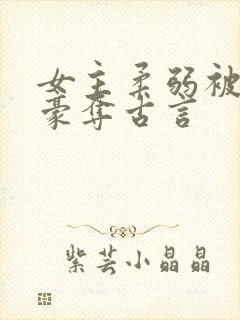 女主柔弱被
豪夺古言
紫芸小晶晶